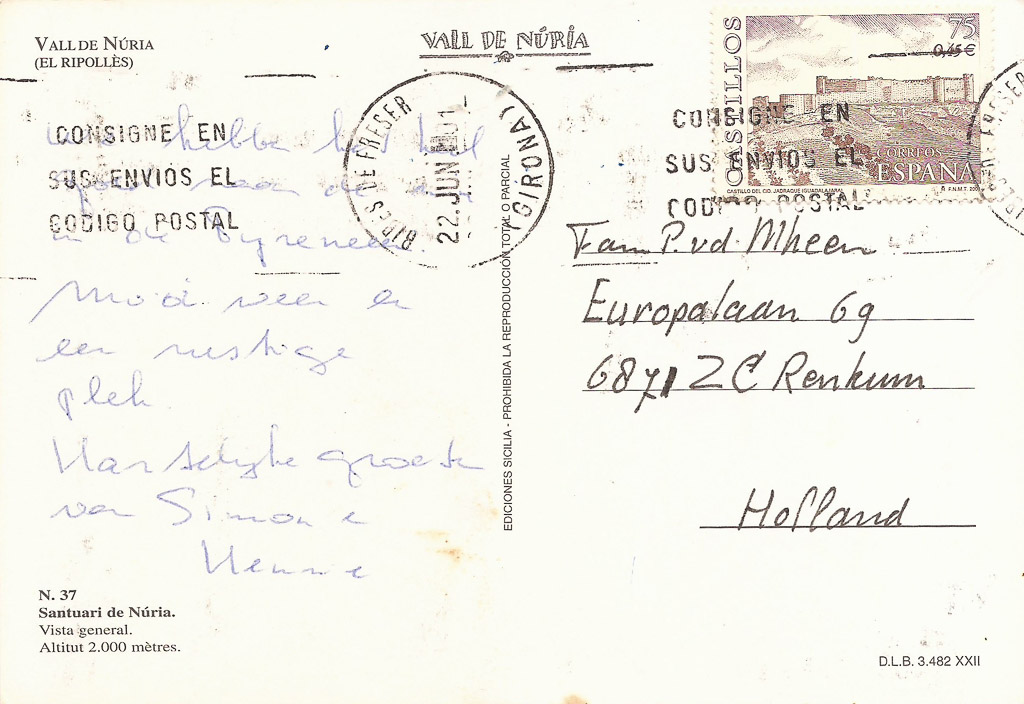 VALL DE NÚRIA
(EL RIPOLLÈS)
VALL DE NÚRIA
CASTILLOS
75
0,45 €
CORREOS
ESPAÑA
CASTILLO DEL CID. JADRAQUE (GUADALAJARA)
RIBES DE FRESER
22. JUN 01
(GIRONA)
CONSIGNE EN
SUS ENVIOS EL
CODIGO POSTAL
CONSIGNE EN
SUS ENVIOS EL
CODIGO POSTAL
hebbe heel
in de Pyreneeen
Mooi weer en
een rustige
plek
Hartelyke groeten
van Simon e
Hennie
EDICIONES SICILIA - PROHIBIDA LA REPRODUCCIÓN TOTAL O PARCIAL
Fam P. vd Mheen
Europalaan 69
6871 ZC Renkum
Holland
N. 37
Santuari de Núria.
Vista general.
Altitut 2.000 mètres.
D.L.B. 3.482 XXII